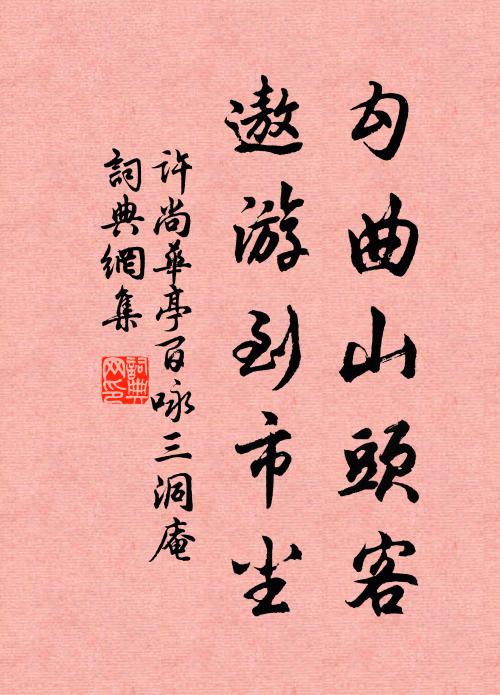 勾曲山頭客
遨游到市尘
許尚華亭百咏三洞庵
詞典網集
詞典
网印